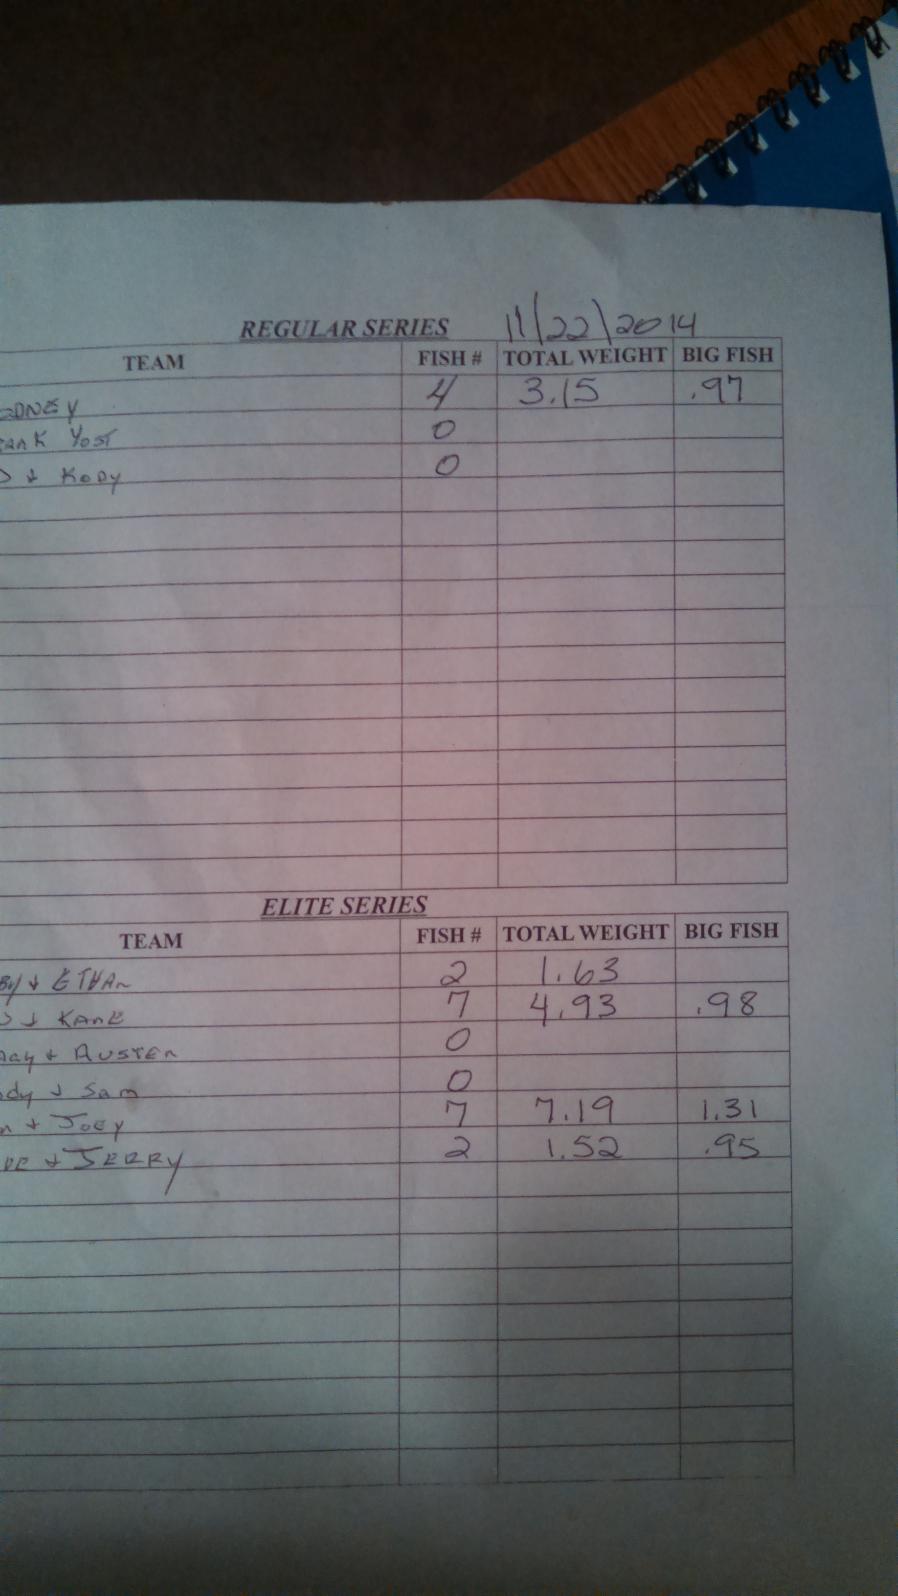 REGULAR SERIES 11/22/2014
TEAM FISH # TOTAL WEIGHT BIG FISH
DNEY 4 3.15 .97
ank Yost 0
& KODY 0
ELITE SERIES
TEAM FISH # TOTAL WEIGHT BIG FISH
By & ETHAn 2 1.63
& KANE 7 4.93 .98
& AUSTEN 0
dy & Sam 0
n & JOEY 7 7.19 1.31
& JERRY 2 1.52 .95